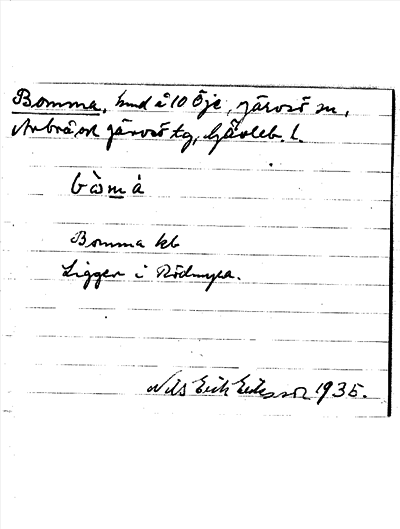 Bomma, hmd å 10 Öje, Järvsö sn,
Arbrå och Järvsö tg, Gävleb. l.
bòmá
Bomma kb
Ligger i Rödmyra.
Nils Erik Eriksson 1935.